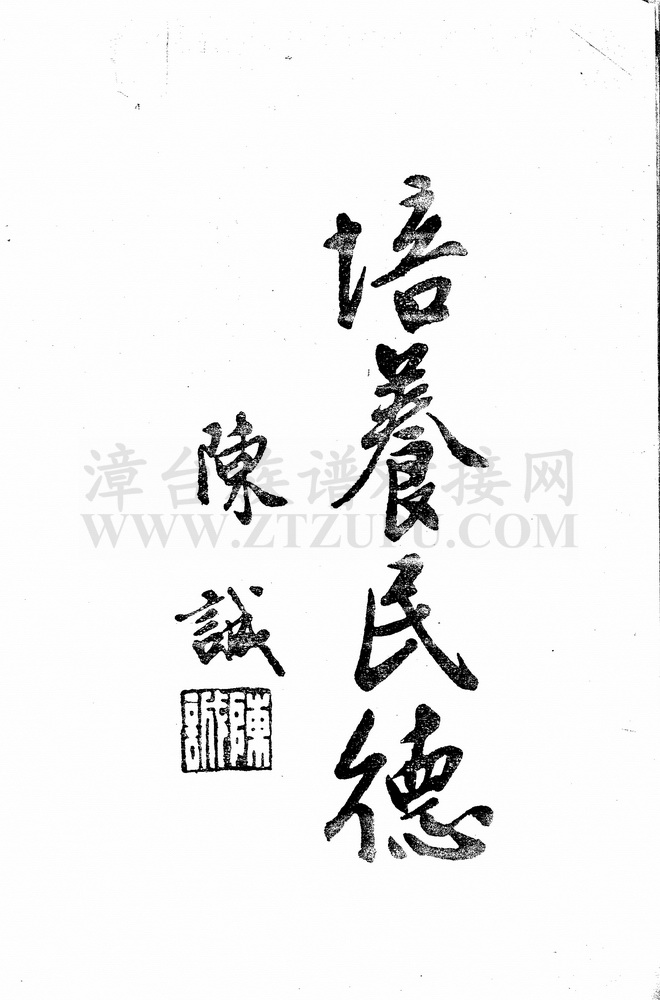 培養民德
陳誠
陳誠
漳台族谱对接网
WWW.ZTZUPU.COM